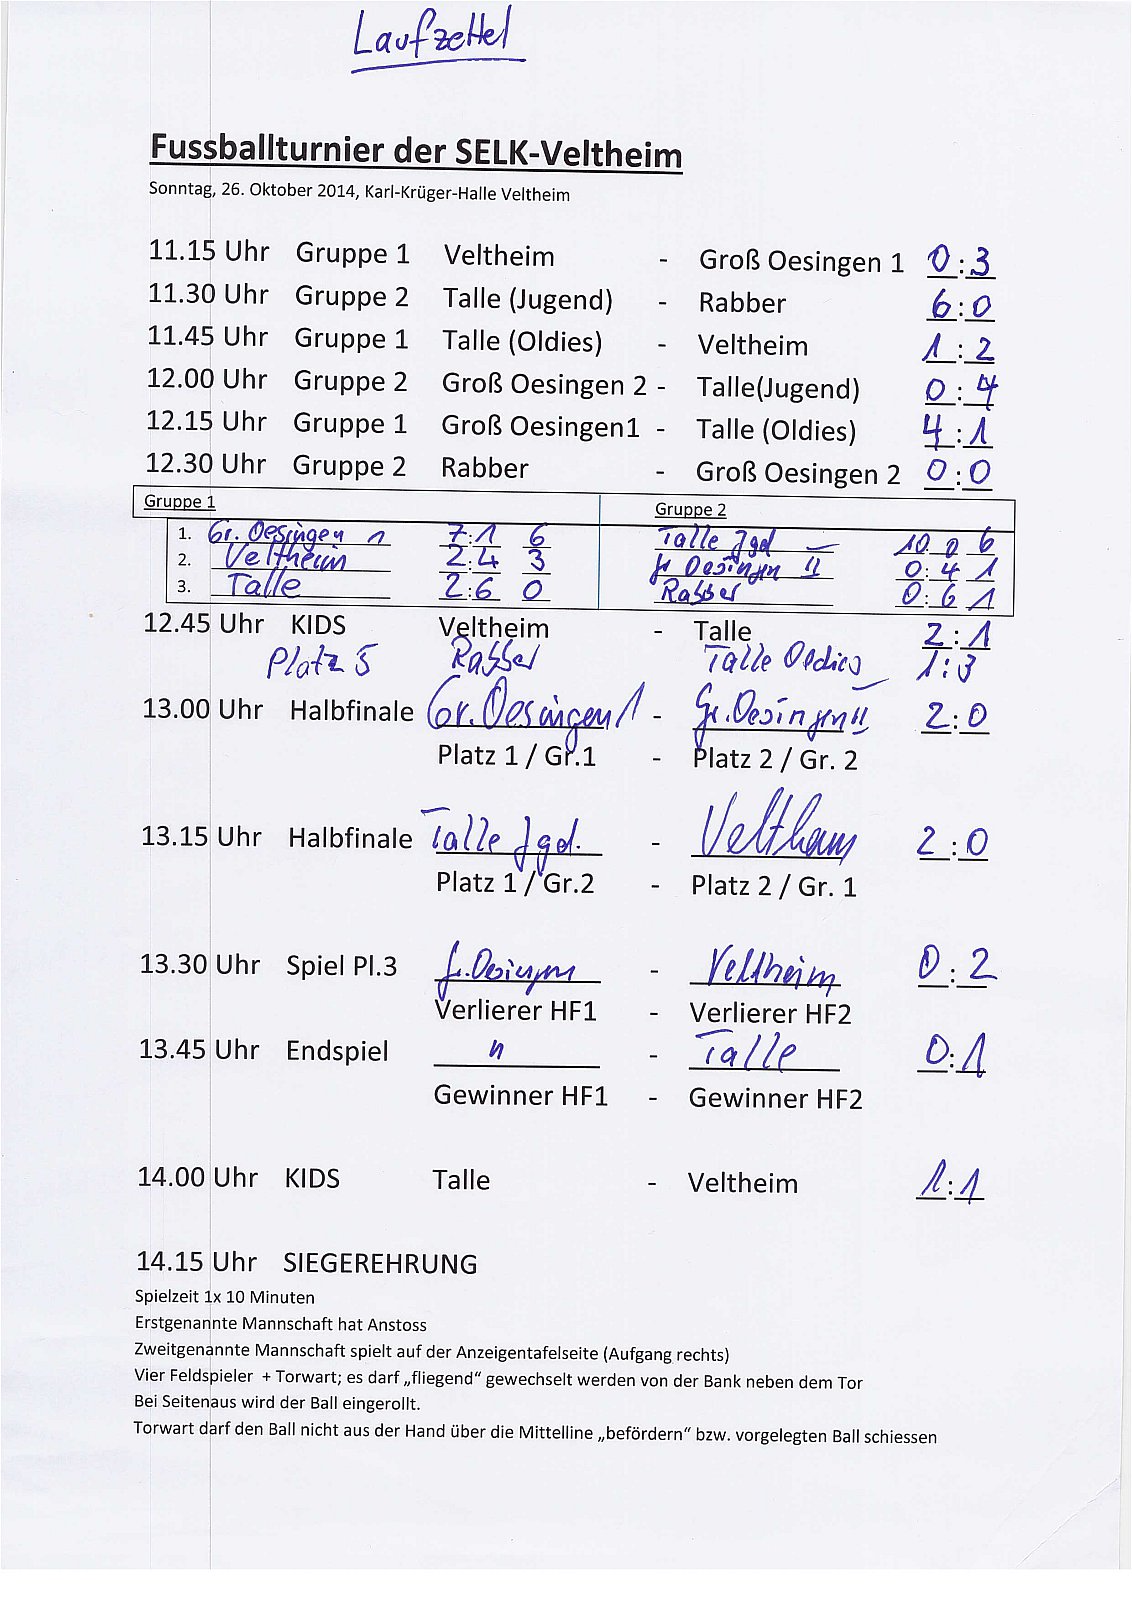 Laufzettel
Fussballturnier der SELK-Veltheim
Sonntag, 26. Oktober 2014, Karl-Krüger-Halle Veltheim
11.15 Uhr Gruppe 1 Veltheim - Groß Oesingen 1 0:3
11.30 Uhr Gruppe 2 Talle (Jugend) - Rabber 6:0
11.45 Uhr Gruppe 1 Talle (Oldies) - Veltheim 1:2
12.00 Uhr Gruppe 2 Groß Oesingen 2 - Talle(Jugend) 0:4
12.15 Uhr Gruppe 1 Groß Oesingen1 - Talle (Oldies) 4:1
12.30 Uhr Gruppe 2 Rabber - Groß Oesingen 2 0:0
Gruppe 1 Gruppe 2
1. Gr. Oesingen 1 7:1 6 Talle Jgd 10 0 6
2. Veltheim 2:4 3 Gr Oesingen II 0:4 1
3. Talle 2:6 0 Rabber 0:6 1
12.45 Uhr KIDS Veltheim - Talle 2:1
Platz 5 Rabber Talle Oldies 1:3
13.00 Uhr Halbfinale Gr. Oesingen 1 - Gr. Oesingen II 2:0
Platz 1 / Gr.1 - Platz 2 / Gr. 2
13.15 Uhr Halbfinale Talle Jgd. - Veltheim 2:0
Platz 1 / Gr.2 - Platz 2 / Gr. 1
13.30 Uhr Spiel Pl.3 Gr. Oesingen - Veltheim 0:2
Verlierer HF1 - Verlierer HF2
13.45 Uhr Endspiel " - Talle 0:1
Gewinner HF1 - Gewinner HF2
14.00 Uhr KIDS Talle - Veltheim 1:1
14.15 Uhr SIEGEREHRUNG
Spielzeit 1x 10 Minuten
Erstgenannte Mannschaft hat Anstoss
Zweitgenannte Mannschaft spielt auf der Anzeigentafelseite (Aufgang rechts)
Vier Feldspieler + Torwart; es darf „fliegend“ gewechselt werden von der Bank neben dem Tor
Bei Seitenaus wird der Ball eingerollt.
Torwart darf den Ball nicht aus der Hand über die Mittelline „befördern“ bzw. vorgelegten Ball schiessen